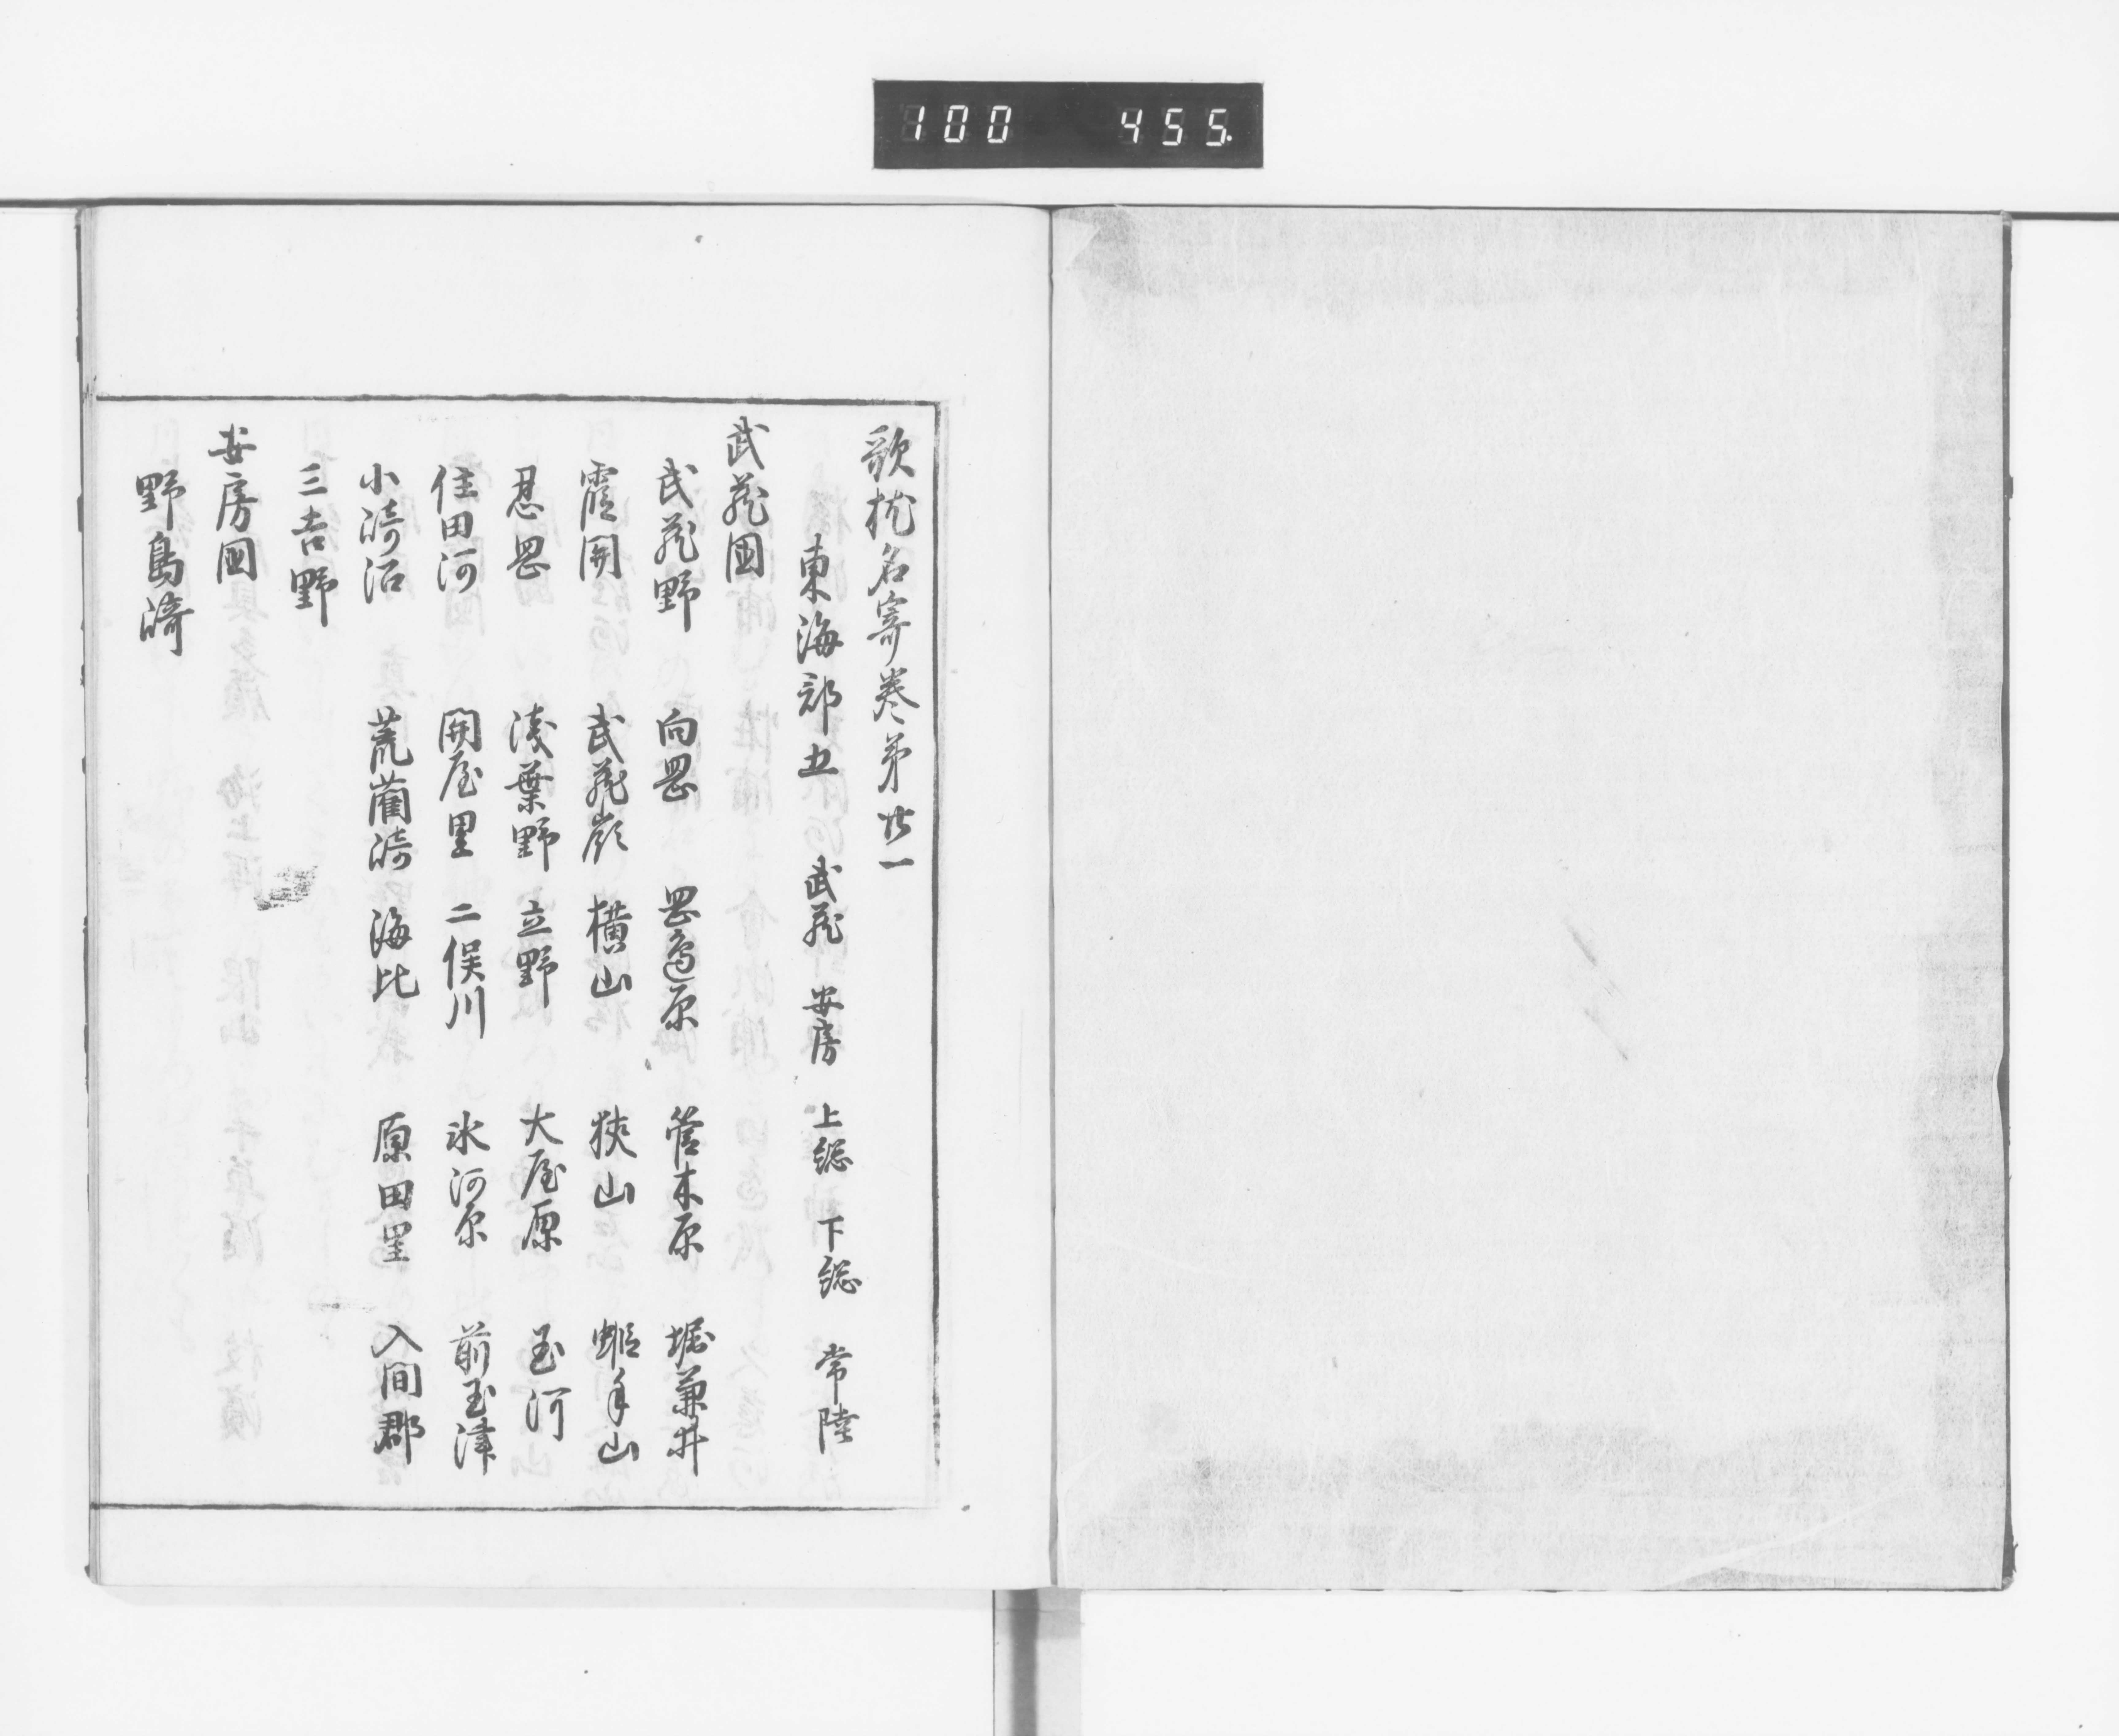 100 455.
歌枕名寄巻第廿一
東海部五 武蔵 安房 上総 下総 常陸
武蔵国
武蔵野 向岡 岡邉原 管木原 堀兼井
霞関 武蔵嶺 横山 狭山 山
忍岡 浅葉野 立野 大屋原 玉河
住田河 関屋里 二俣川 氷河原 前玉津
小﨑沼 荒藺﨑 海比 原田里 入間郡
三吉野
安房国
野島﨑